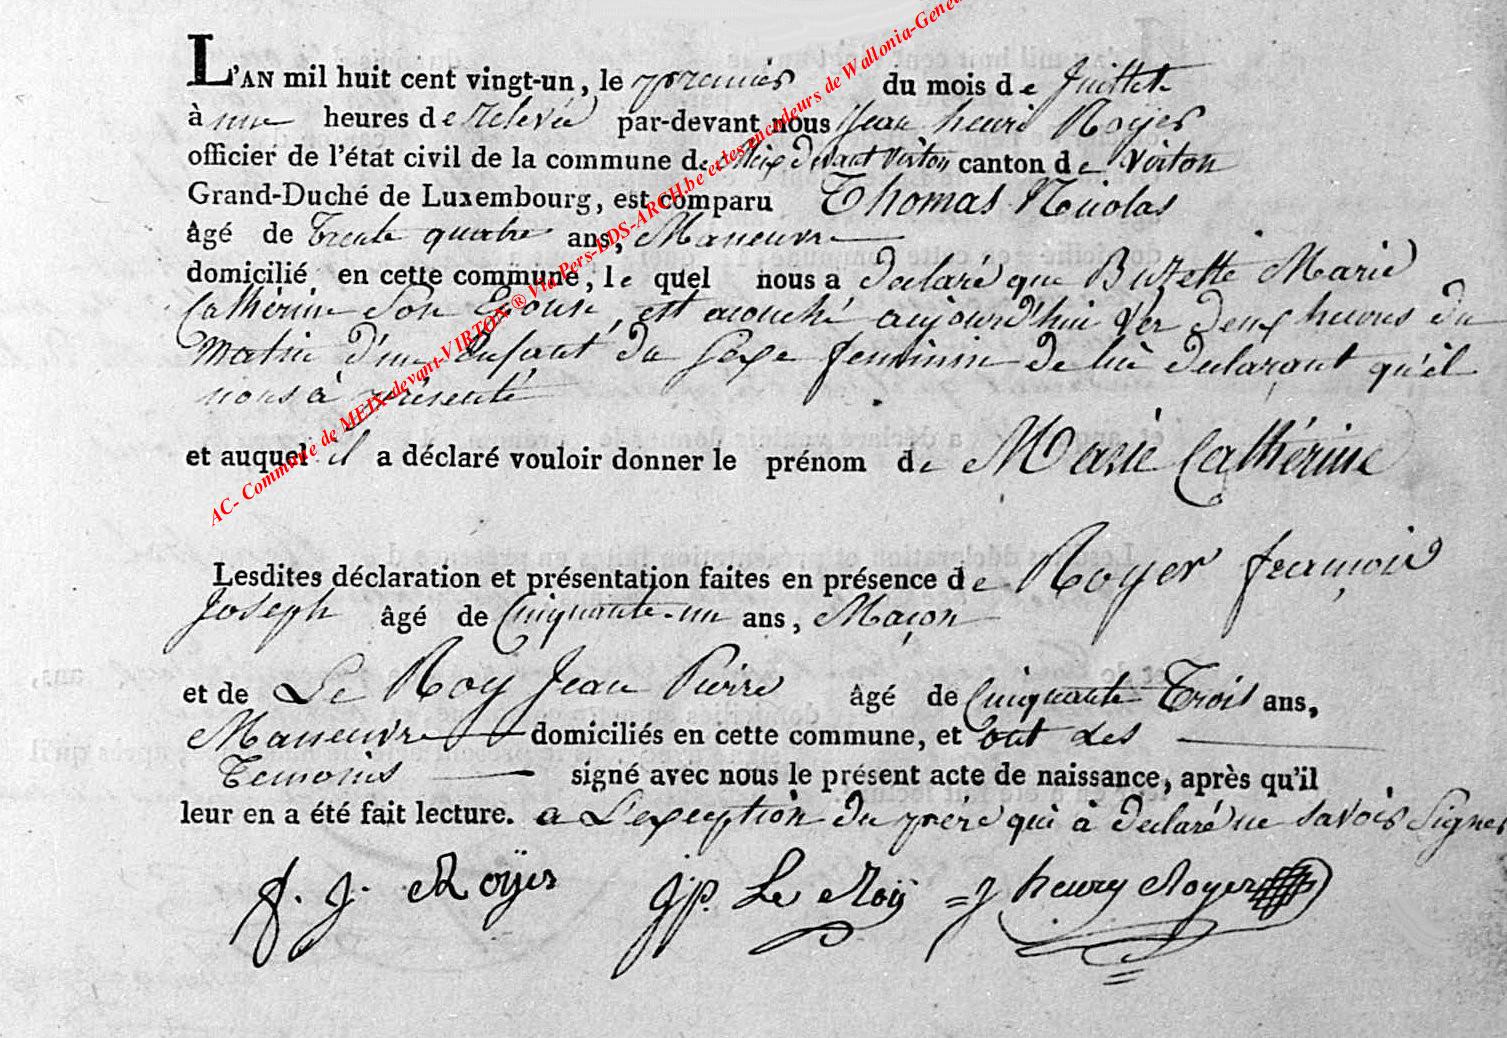 L'AN mil huit cent vingt-un, le premier du mois de juillet
à une heures de relevée par-devant nous Jean henri Royer
officier de l'état civil de la commune de Meix devant virton canton de virton
Grand-Duché de Luxembourg, est comparu Thomas Nicolas
âgé de trente quatre ans, Maneuvre
domicilié en cette commune, le quel nous a declaré que Buzette Marie
Cathérine son Epouse, est acouché aujourd'hui ver deux heures du
matin d'un Enfant du Sexe feminin de lui declarant qu'il
nous à présenté
et auquel il a déclaré vouloir donner le prénom de Marie Cathérine
Lesdites déclaration et présentation faites en présence de Royer françois
Joseph âgé de Cinquante-un ans, Maçon
et de Le Roy Jean Pierre âgé de Cinquante Trois ans,
Maneuvre domiciliés en cette commune, et ont des
Temoins signé avec nous le présent acte de naissance, après qu'il
leur en a été fait lecture. a L'exception du père qui à declaré ne savoir Signer
f. j. Roÿer jp. Le Roÿ j henry Royer
AC- Commune de MEIX-devant-VIRTON ® Via Pers-LDS-ARCH.be et les encodeurs de Wallonia-Genea